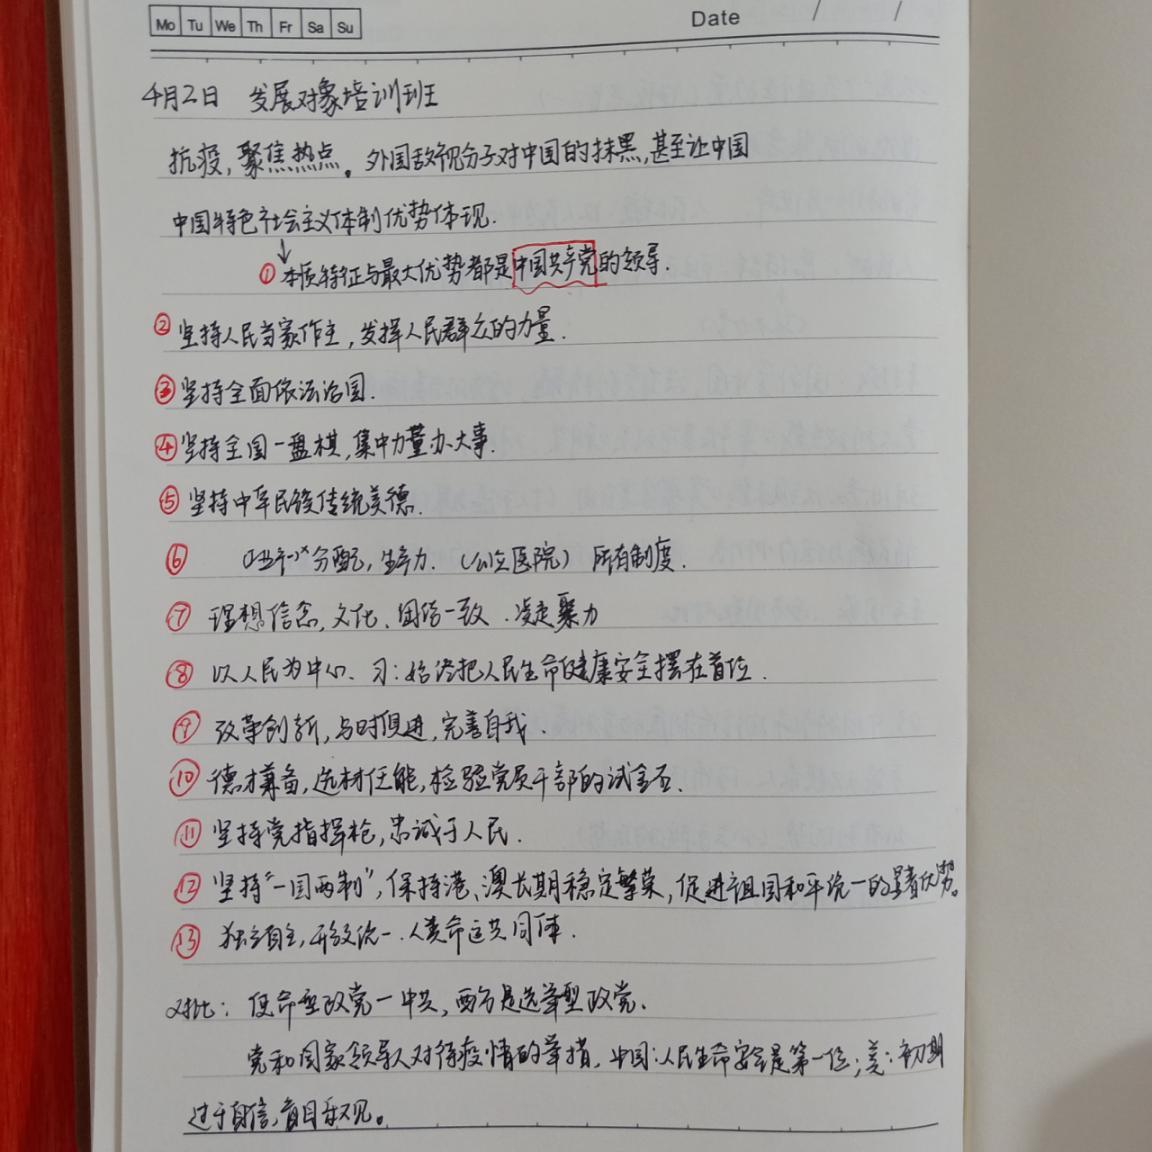 Mo Tu We Th Fr Sa Su
Date / /
4月2日 发展对象培训班
抗疫,聚焦热点。外国敌视分子对中国的抹黑,甚至让中国
中国特色社会主义体制优势体现.
①本质特征与最大优势都是中国共产党的领导.
②坚持人民当家作主,发挥人民群众的力量.
③坚持全面依法治国.
④坚持全国一盘棋,集中力量办大事.
⑤坚持中华民族传统美德.
⑥ 分配,生产力.(公立医院)所有制度.
⑦理想信念,文化、团结一致.凝是聚力
⑧以人民为中心、习:始终把人民生命健康安全摆在首位.
⑨改革创新,与时俱进,完善自我.
⑩德才兼备,选材任能,检验党员干部的试金石.
⑪坚持党指挥枪,忠诚于人民.
⑫坚持“一国两制”,保持港、澳长期稳定繁荣,促进祖国和平统一的显著优势。
⑬独立自主,统一.人类命运共同体.
对比:使命型政党一中共,西方是选举型政党、
党和国家领导人对待疫情的举措,中国:人民生命安全是第一位;美:初期
过于自信,盲目乐观。